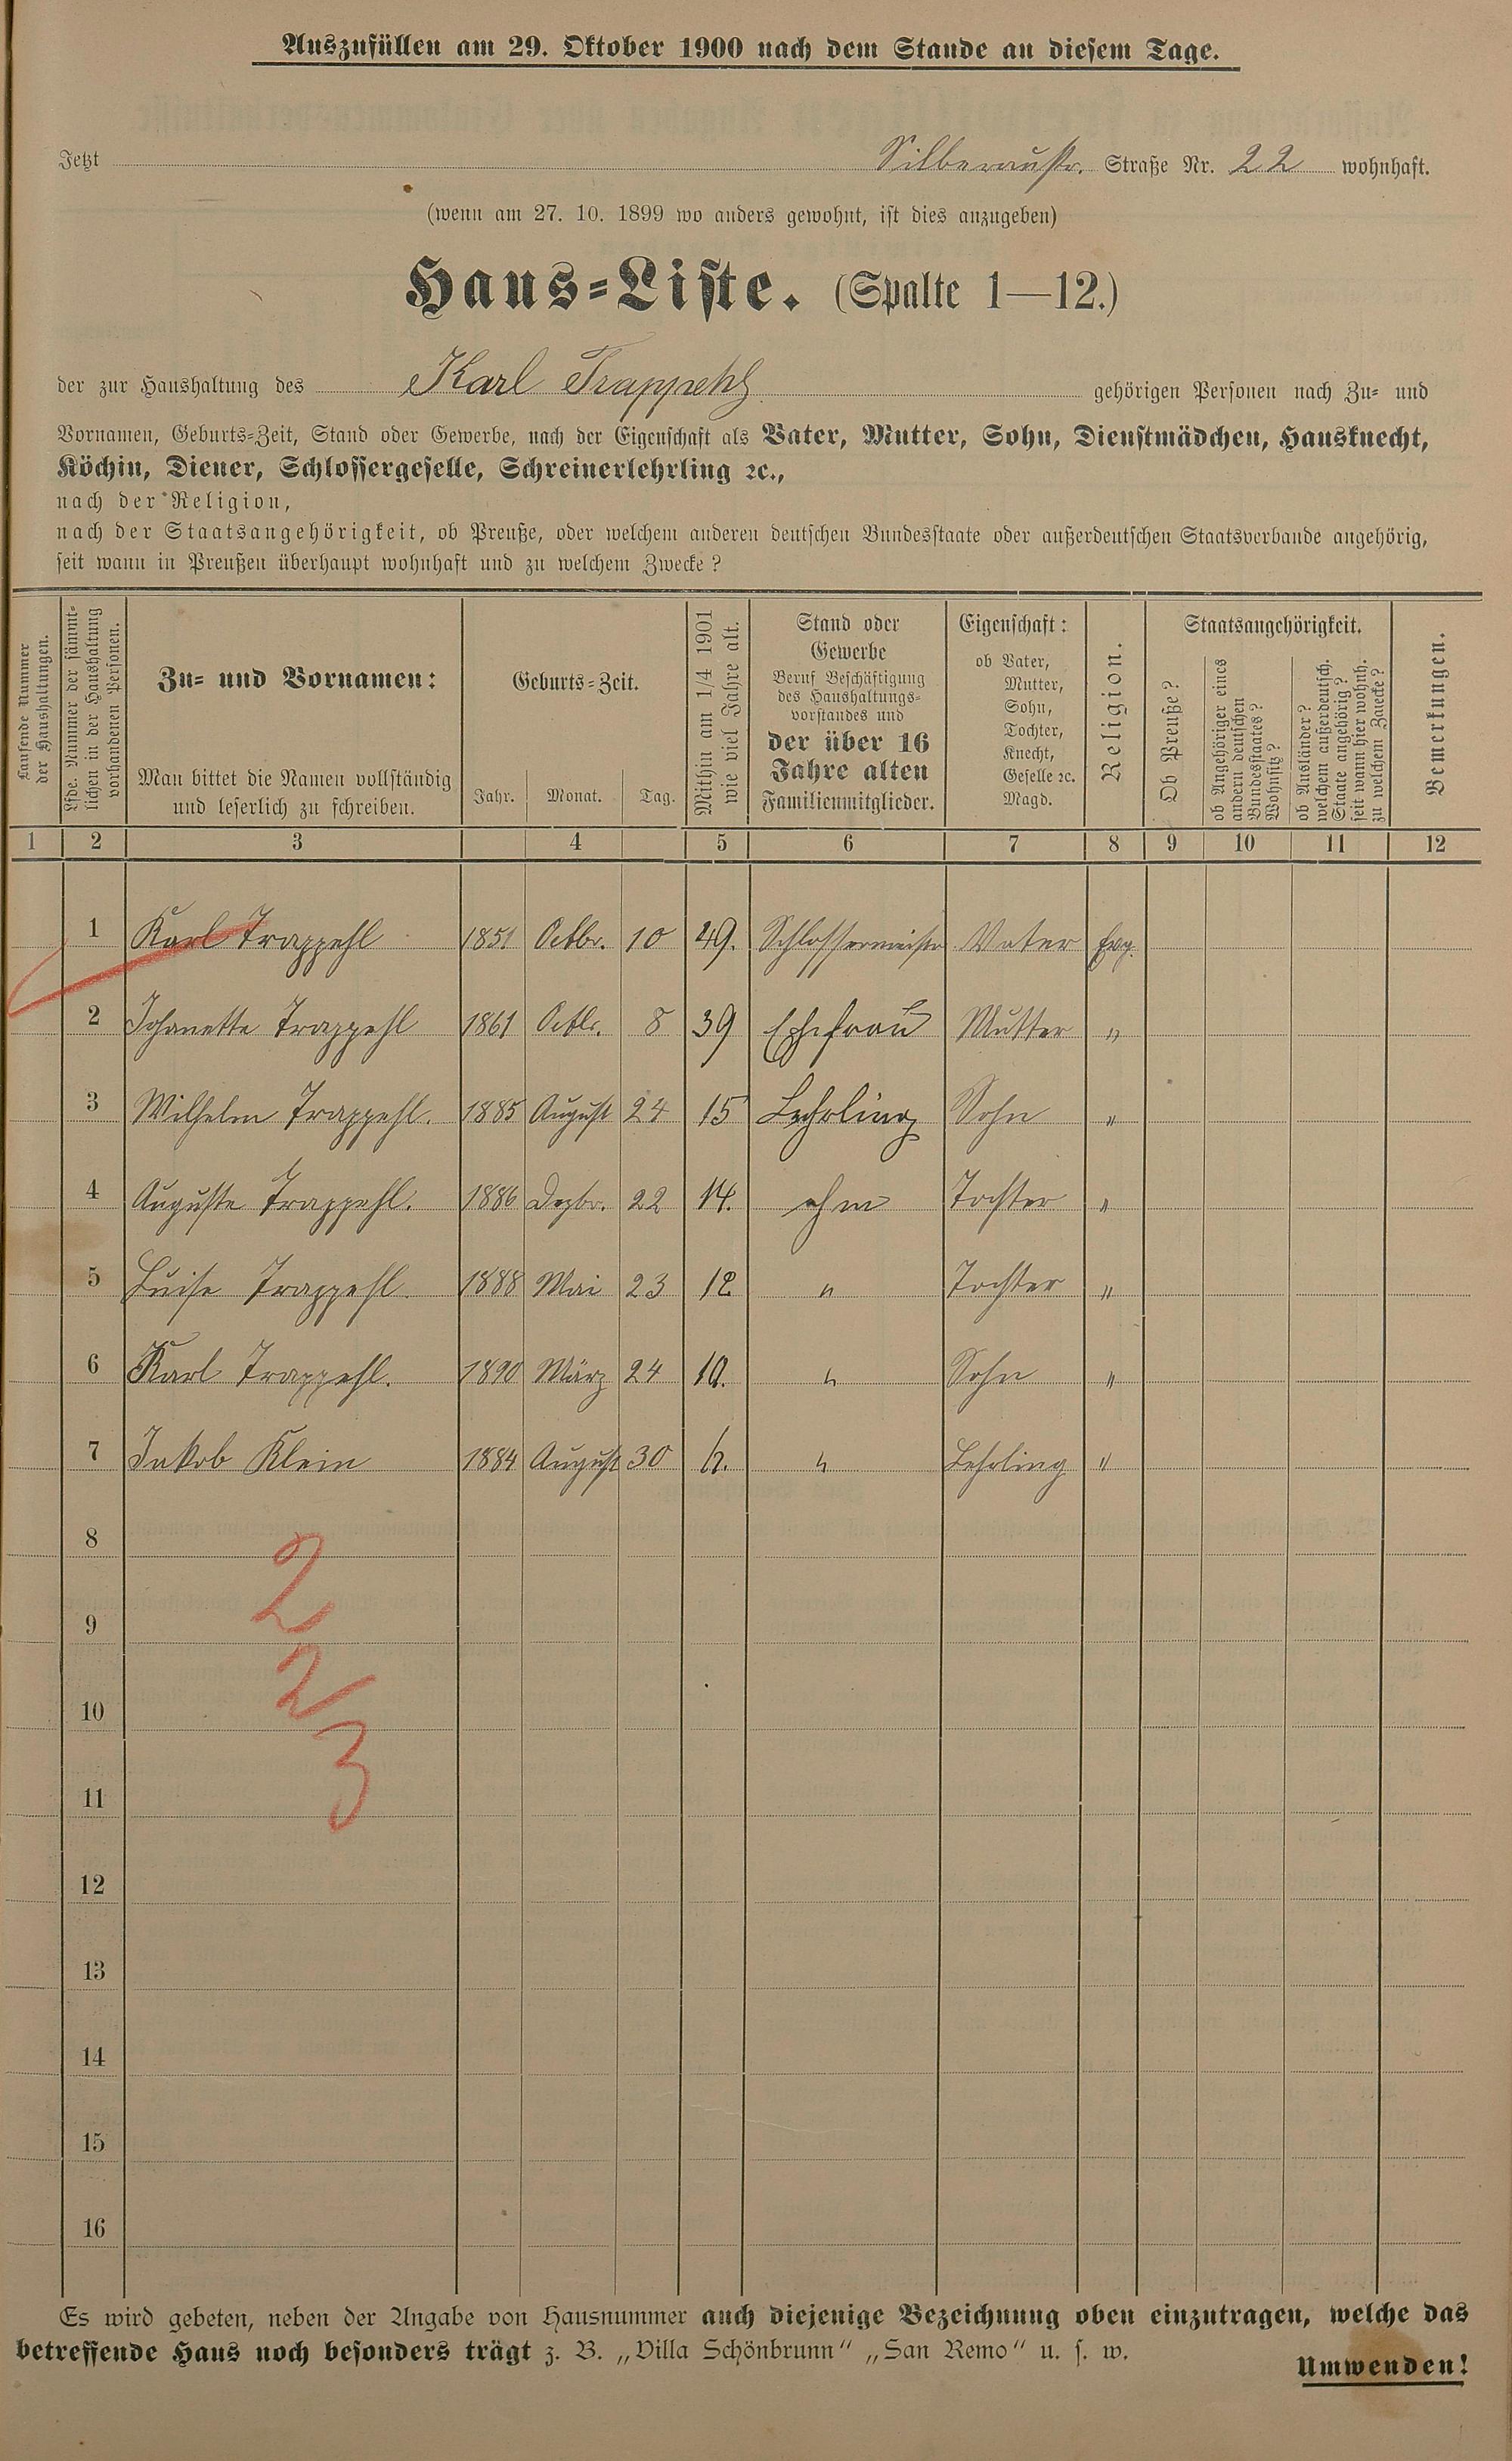 Auszufüllen am 29. Oktober 1900 nach dem Stande an diesem Tage.
Jetzt Silberaustr. Straße Nr. 22 wohnhaft.
(wenn am 27. 10. 1899 wo anders gewohnt, ist dies anzugeben)
Haus-Liste. (Spalte 1—12.)
der zur Haushaltung des Karl Trappehl gehörigen Personen nach Zu- und
Vornamen, Geburts-Zeit, Stand oder Gewerbe, nach der Eigenschaft als Vater, Mutter, Sohn, Dienstmädchen, Hausknecht,
Köchin, Diener, Schlossergeselle, Schreinerlehrling ꝛc.,
nach der Religion,
nach der Staatsangehörigkeit, ob Preuße, oder welchem anderen deutschen Bundesstaate oder außerdeutschen Staatsverbande angehörig,
seit wann in Preußen überhaupt wohnhaft und zu welchem Zwecke?
Laufende Nummer
der Haushaltungen.
Lfde. Nummer der sämmt-
lichen in der Haushaltung
vorhandenen Personen.
Zu- und Vornamen:
Man bittet die Namen vollständig
und leserlich zu schreiben.
Geburts-Zeit.
Jahr. Monat. Tag.
Mithin am 1/4 1901
wie viel Jahre alt.
Stand oder
Gewerbe
Beruf Beschäftigung
des Haushaltungs-
vorstandes und
der über 16
Jahre alten
Familienmitglieder.
Eigenschaft:
ob Vater,
Mutter,
Sohn,
Tochter,
Knecht,
Geselle ꝛc.
Magd.
Religion.
Staatsangehörigkeit.
Ob Preuße?
ob Angehöriger eines
andern deutschen
Bundesstaates?
Wohnsitz?
ob Ausländer?
welchem außerdeutsch.
Staate angehörig?
seit wann hier wohnh.
zu welchem Zwecke?
Bemerkungen.
1 2 3 4 5 6 7 8 9 10 11 12
1 Karl Trappehl 1851 Octbr. 10 49. Schlossermeister Vater Evg.
2 Johanette Trappehl 1861 Octbr. 8 39 Ehefrau Mutter "
3 Wilhelm Trappehl. 1885 August 24 15 Lehrling Sohn "
4 Auguste Trappehl. 1886 Dezbr. 22 14. ohne Tochter "
5 Luise Trappehl. 1888 Mai 23 12 " Tochter "
6 Karl Trappehl. 1890 März 24 10. " Sohn "
7 Jakob Klein 1884 August 30 " Lehrling "
8
2
9
2
10
3
11
12
13
14
15
16
Es wird gebeten, neben der Angabe von Hausnummer auch diejenige Bezeichnung oben einzutragen, welche das
betreffende Haus noch besonders trägt z. B. „Villa Schönbrunn“ „San Remo“ u. s. w.
Umwenden!